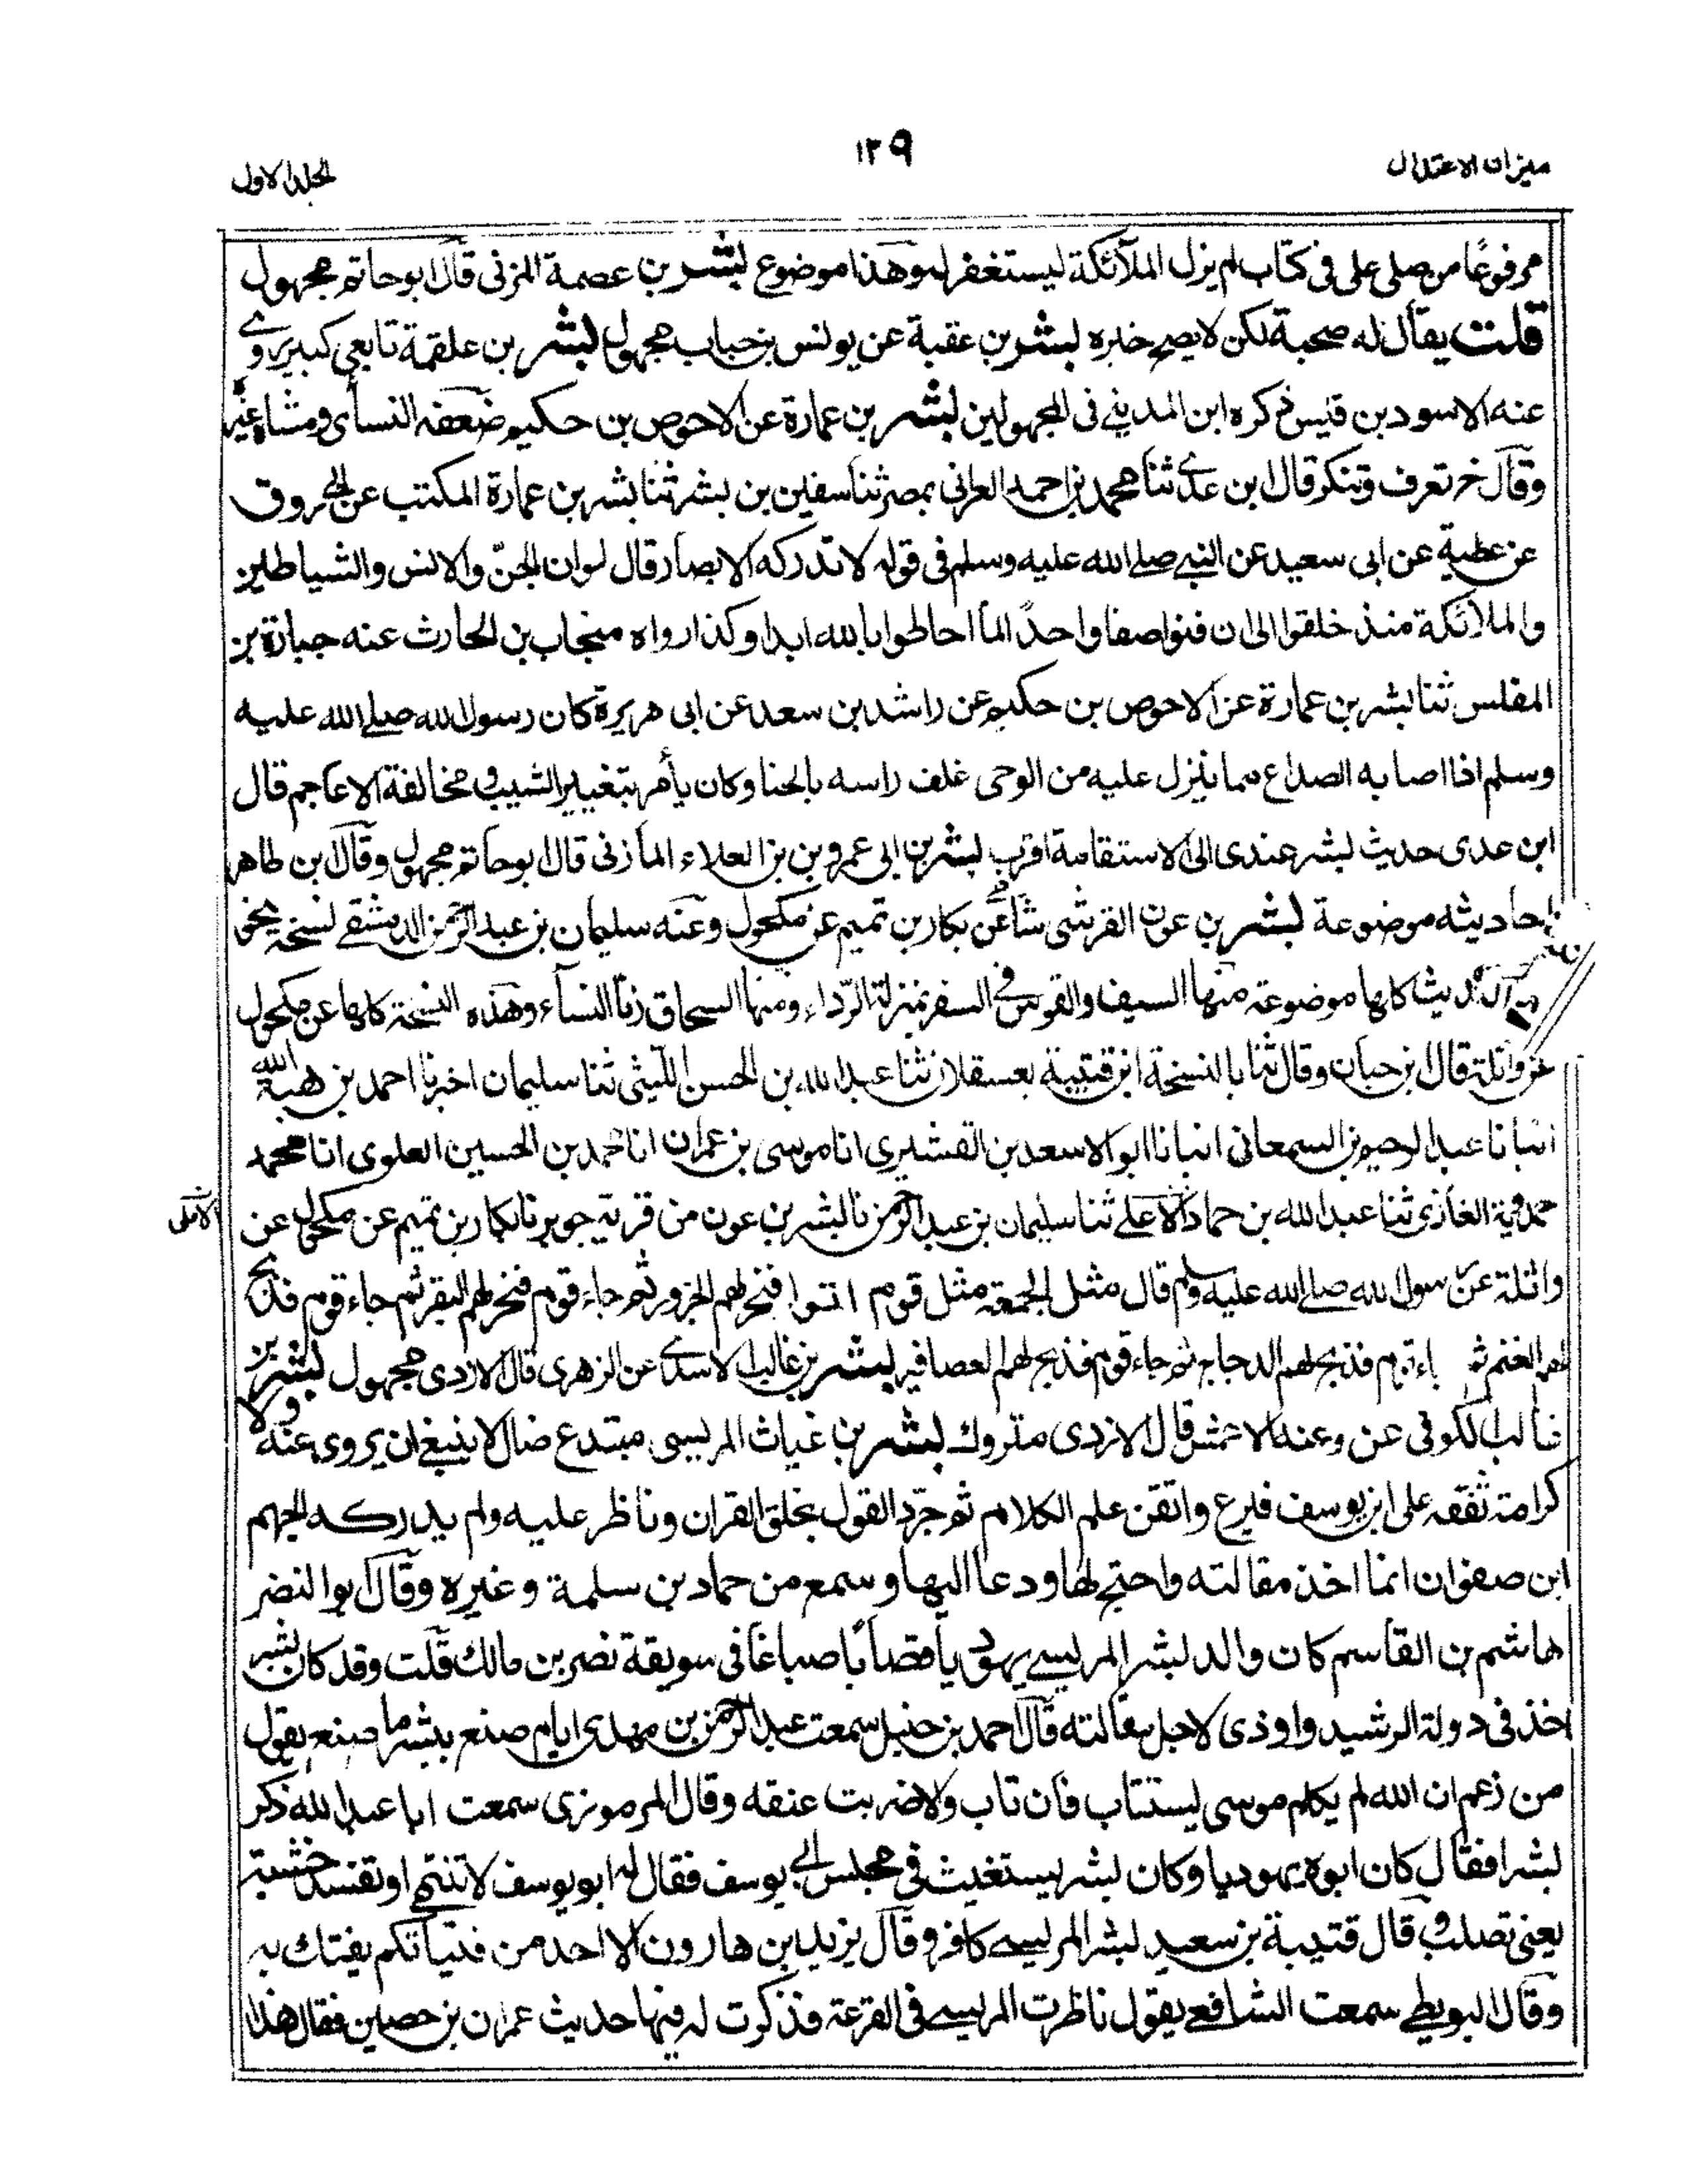 ميزان الاعتدال
١٣٩
المجلد الاول
مرفوعًا من صلى على فى كتاب لم يزل الملآئكة ليستغفر له وهذا موضوع بشر بن عصمة المزنى قال ابو حاتم مجهول
قلت يقال له صحبة لكن لا يصح خبره بشر بن عقبة عن يونس بن خباب مجهول بشر بن علقمة تابعى كبير روى
عنه الاسود بن قيس ذكره ابن المدينے فى المجهولين بشر بن عمارة عن الاحوص بن حكيم ضعفه النسأى ومشاه غيره
وقال خ تعرف وتنكر قال ابن عدے ثنا محمد بن احمد العرانى بمصر ثنا سفين بن بشر ثنا بشر بن عمارة المكتب عن ابى روق
عن عطية عن ابى سعيد عن النبے صلے الله عليه وسلم فى قوله لا تدركه الابصار قال لو ان الجنّ والانس والشياطين
والملائكة منذ خلقوا الى ان فنوا صفا واحدًا ما احاطوا بالله ابدا وكذا رواه منجاب بن الحارث عنه جبارة بن
المفلس ثنا بشر بن عمارة عن الاحوص بن حكيم عن راشد بن سعد عن ابى هريرة كان رسول الله صلے الله عليه
وسلم اذا اصابه الصداع مما ينزل عليه من الوحى غلف راسه بالحنا وكان يأمر بتغيير الشيب و مخالفة الاعاجم قال
ابن عدى حديث بشر عندى الى الاستقامة اقرب بشر بن ابى عمرو بن بن العلاء المازنى قال ابو حاتم مجهول وقال بن طاهر
احاديثه موضوعة بشر بن عون القرشى شا عن بكار بن تميم عن مكحول وعنه سليمان بن عبد الرحمن الدمشقے نسخة نحو
حديث كلها موضوعة منها السيف والقوس فى السفر بمنزلة الرّداء ومنها السحاق زنا النسآء وهذه النسخة كلها عن مكحول
عن واثلة قال ابن حبان وقال ثنا بالنسخة ابن قتيبة بعسقلان ثنا عبد الله بن الحسن الليثى ثنا سليمان اخبرنا احمد بن هبة الله
انبانا عبد الرحيم بن السمعانى انبانا ابو الاسعد بن القشيرى انا موسى بن عمران انا محمد بن الحسين العلوى انا محمد
حمدوية الغازى ثنا عبد الله بن حماد الاعلے ثنا سليمان بن عبد الرحمن نا بشر بن عون من قرية جوبر نا بكار بن تميم عن مكحول عن
الآملى
واثلة عن رسول الله صلے الله عليه وسلم قال مثل الجمعة مثل قوم اتوا فنحر لهم الجزور ثم جاء قوم فنحر لهم البقر ثم جاء قوم فذبح
لهم الغنم ثم جاء قوم فذبح لهم الدجاج ثم جاء قوم فذبح لهم العصافير بشر بن غالب الاسدے عن الزهرى قال الازدى مجهول بشر بن
غالب الكوفى عن وعنه الاعمش قال الازدى متروك بشر بن غياث المريسى مبتدع ضال لا ينبغے ان يروى عنه ولا
كرامة تفقه على ابن يوسف فبرع واتقن علم الكلام ثم جرّد القول بخلق القران وناظر عليه ولم يدرك الجهم
ابن صفوان انما اخذ مقالته واحتج لها ودعا اليها وسمع من حماد بن سلمة وغيره وقال ابو النضر
هاشم بن القاسم كان والد بشر المريسے يهوديا قصابا صباغا فى سويقة نصر بن مالك قلت وقد كان بشر
اخذ فى دولة الرشيد واوذى لاجل مقالته قال احمد بن حنبل سمعت عبد الرحمن بن مهدى ايام صنع ببشر ما صنع يقول
من زعم ان الله لم يكلم موسى يستتاب فان تاب والا ضربت عنقه وقال المرموزى سمعت ابا عبد الله ذكر
بشرا فقال كان ابوه يهوديا وكان بشر يستغيث فى مجلس ابے يوسف فقال له ابو يوسف لا تنتهى او تفسد خشبة
يعنى تصلب وقال قتيبة بن سعيد بشر المريسے كافر وقال يزيد بن هارون الا احد من فتيانكم يفتك به
وقال البويطے سمعت الشافعے يقول ناظرت المريسے فى القرعة فذكرت له فيها حديث عمران بن حصين فقال هذا